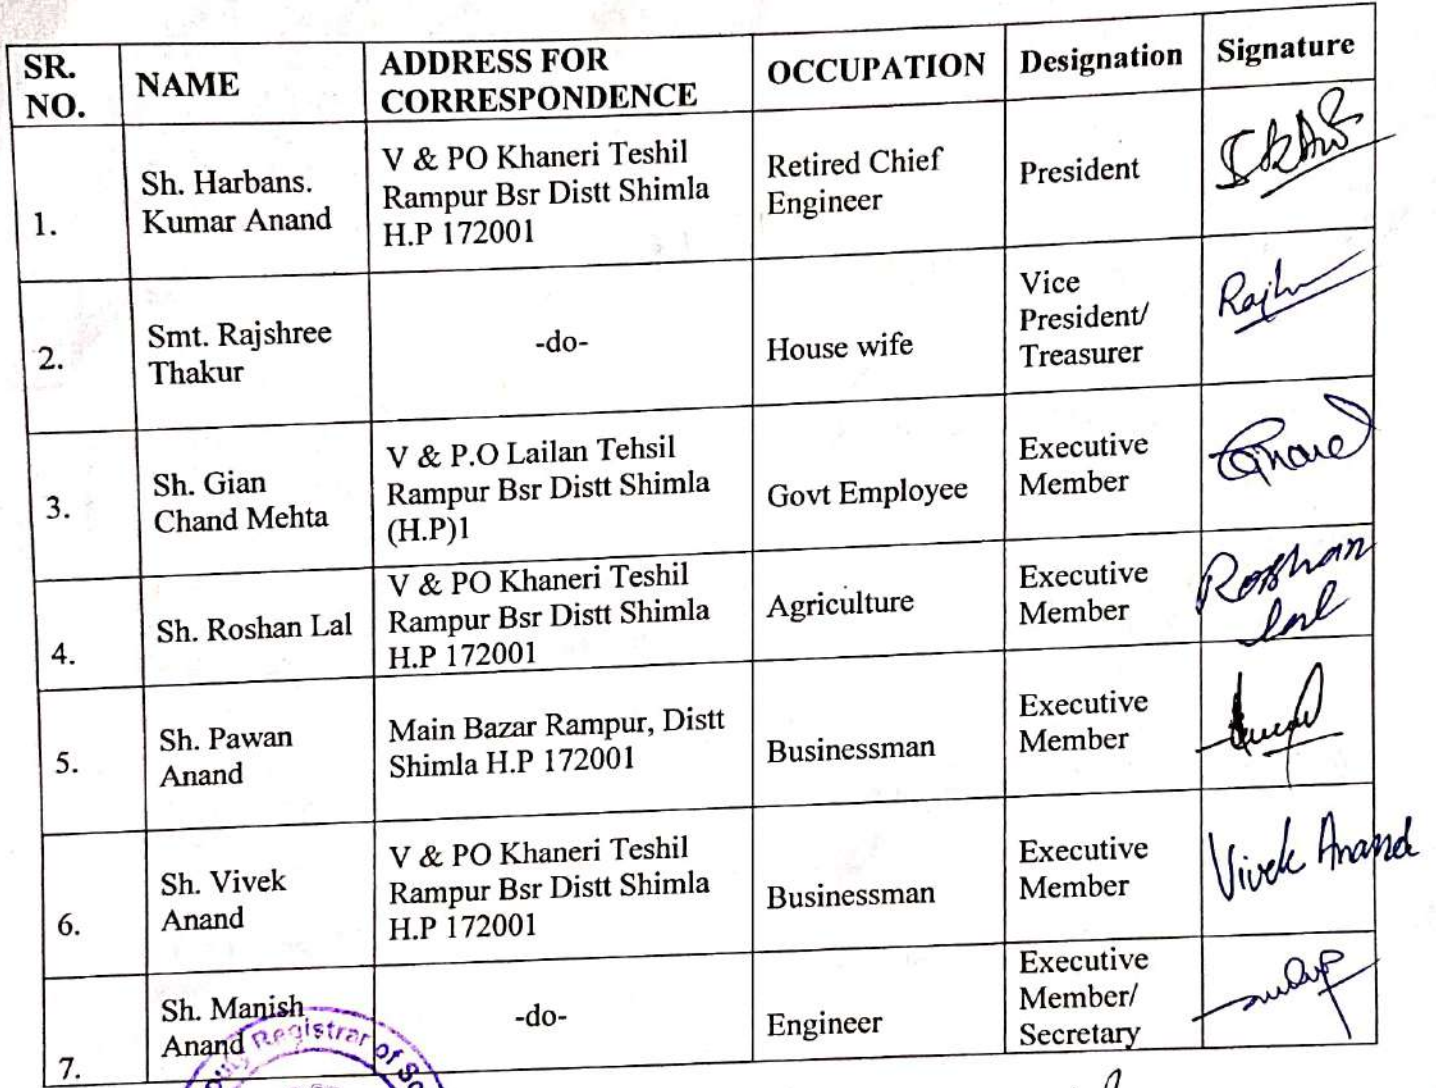 SR. NO. NAME ADDRESS FOR CORRESPONDENCE OCCUPATION Designation Signature
1. Sh. Harbans. Kumar Anand V & PO Khaneri Teshil Rampur Bsr Distt Shimla H.P 172001 Retired Chief Engineer President
2. Smt. Rajshree Thakur -do- House wife Vice President/ Treasurer
3. Sh. Gian Chand Mehta V & P.O Lailan Tehsil Rampur Bsr Distt Shimla (H.P)1 Govt Employee Executive Member
4. Sh. Roshan Lal V & PO Khaneri Teshil Rampur Bsr Distt Shimla H.P 172001 Agriculture Executive Member Roshan Lal
5. Sh. Pawan Anand Main Bazar Rampur, Distt Shimla H.P 172001 Businessman Executive Member
6. Sh. Vivek Anand V & PO Khaneri Teshil Rampur Bsr Distt Shimla H.P 172001 Businessman Executive Member Vivek Anand
7. Sh. Manish Anand -do- Engineer Executive Member/ Secretary
Registrar of